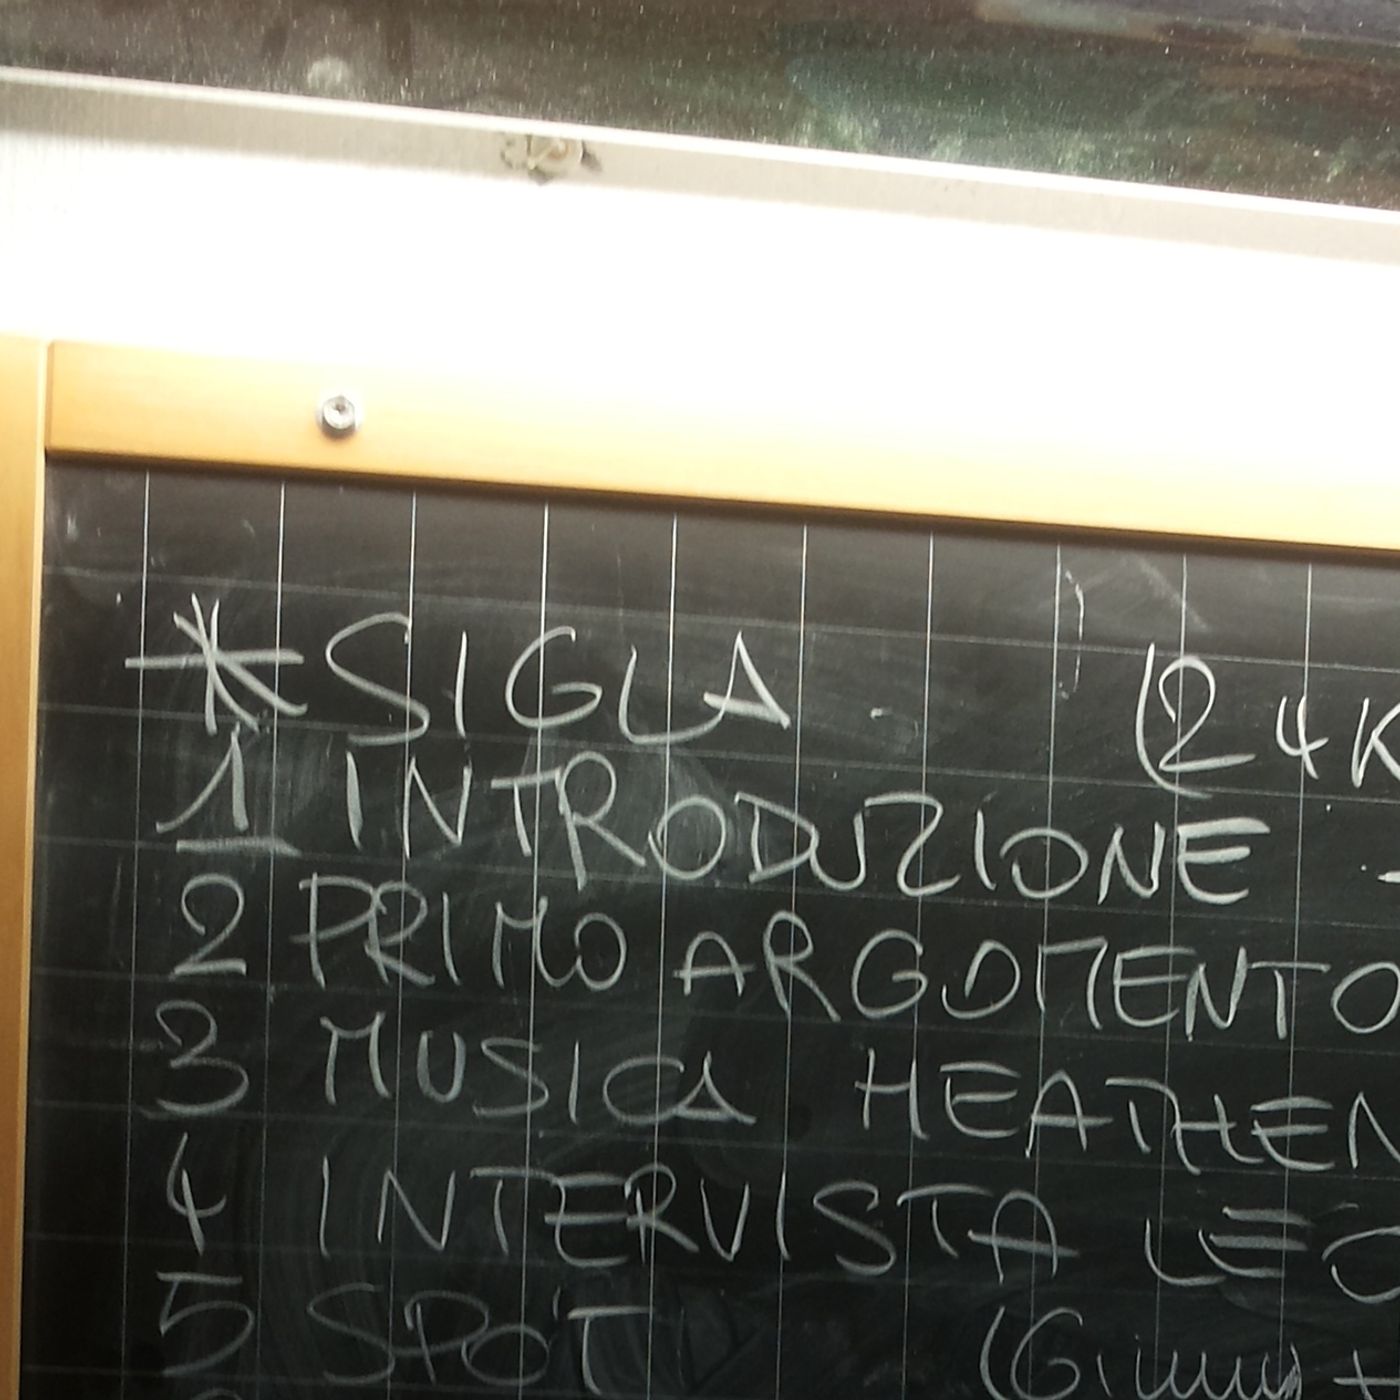 * SIGLA (24K
1 INTRODUZIONE -
2 PRIMO ARGOMENTO
3 MUSICA HEATHEN
4 INTERVISTA LEO
5 SPOT